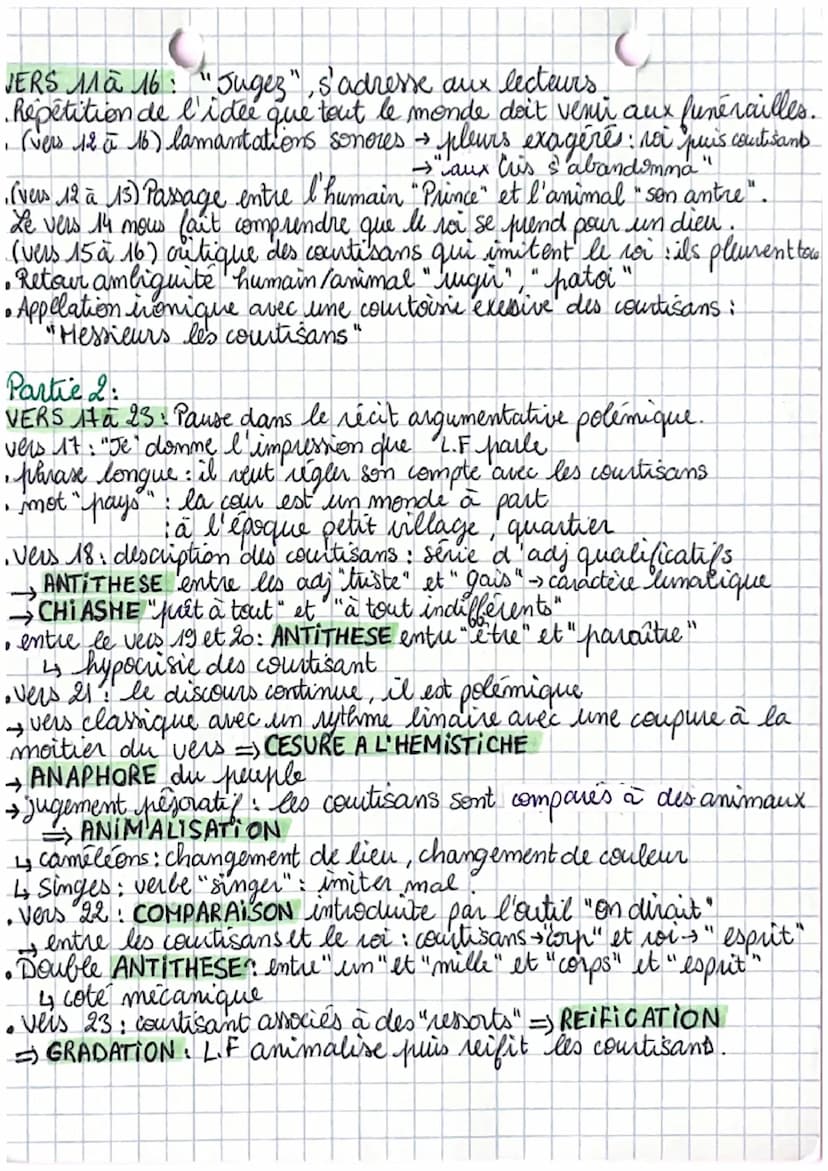 VERS 11 à 16 : "Jugez", s'adresse aux lecteurs
. Répétition de l'idée que tout le monde doit venir aux funérailles.
. (vers 12 à 16) lamantations sonores → pleurs exagérés : roi puis courtisans
→ "aux cris s'abandonna"
. (vers 12 à 13) Passage entre l'humain "Prince" et l'animal "son antre".
Le vers 14 nous fait comprendre que le roi se prend pour un dieu.
(vers 15 à 16) critique des courtisans qui imitent le roi : ils pleurent tous
. Retour ambiguité humain/animal "rugir", "patoi"
. Appelation ironique avec une courtoisie exessive des courtisans :
"Messieurs les courtisans"
Partie 2 :
VERS 17 à 23 : Pause dans le récit argumentative polémique.
vers 17 : "Je" donne l'impression que L.F parle
. phrase longue : il veut régler son compte avec les courtisans
. mot "pays" : la cour est un monde à part
: à l'époque petit village, quartier
. vers 18 : description des courtisans : série d'adj qualificatifs
→ ANTITHESE entre les adj "triste" et "gais" → caractère lunatique
→ CHIASME "prêt à tout" et "à tout indifférents"
. entre le vers 19 et 20 : ANTITHESE entre "être" et "paraître"
↳ hypocrisie des courtisant
. vers 21 : le discours continue, il est polémique
→ vers classique avec un rythme linaire avec une coupure à la
moitier du vers ⇒ CESURE A L'HEMISTICHE
→ ANAPHORE du peuple
→ jugement péjoratif : les courtisans sont comparés à des animaux
⇒ ANIMALISATION
↳ caméléons : changement de lieu, changement de couleur
↳ Singes : verbe "singer" : imiter mal.
. vers 22 : COMPARAISON introduite par l'outil "on dirait"
→ entre les courtisans et le roi : courtisans → "corp" et roi → "esprit"
. Double ANTITHESE : entre "un" et "mille" et "corps" et "esprit"
↳ coté mécanique
. vers 23 : courtisant associés à des "ressorts" ⇒ REIFICATION
⇒ GRADATION : L.F animalise puis reifit les courtisans.